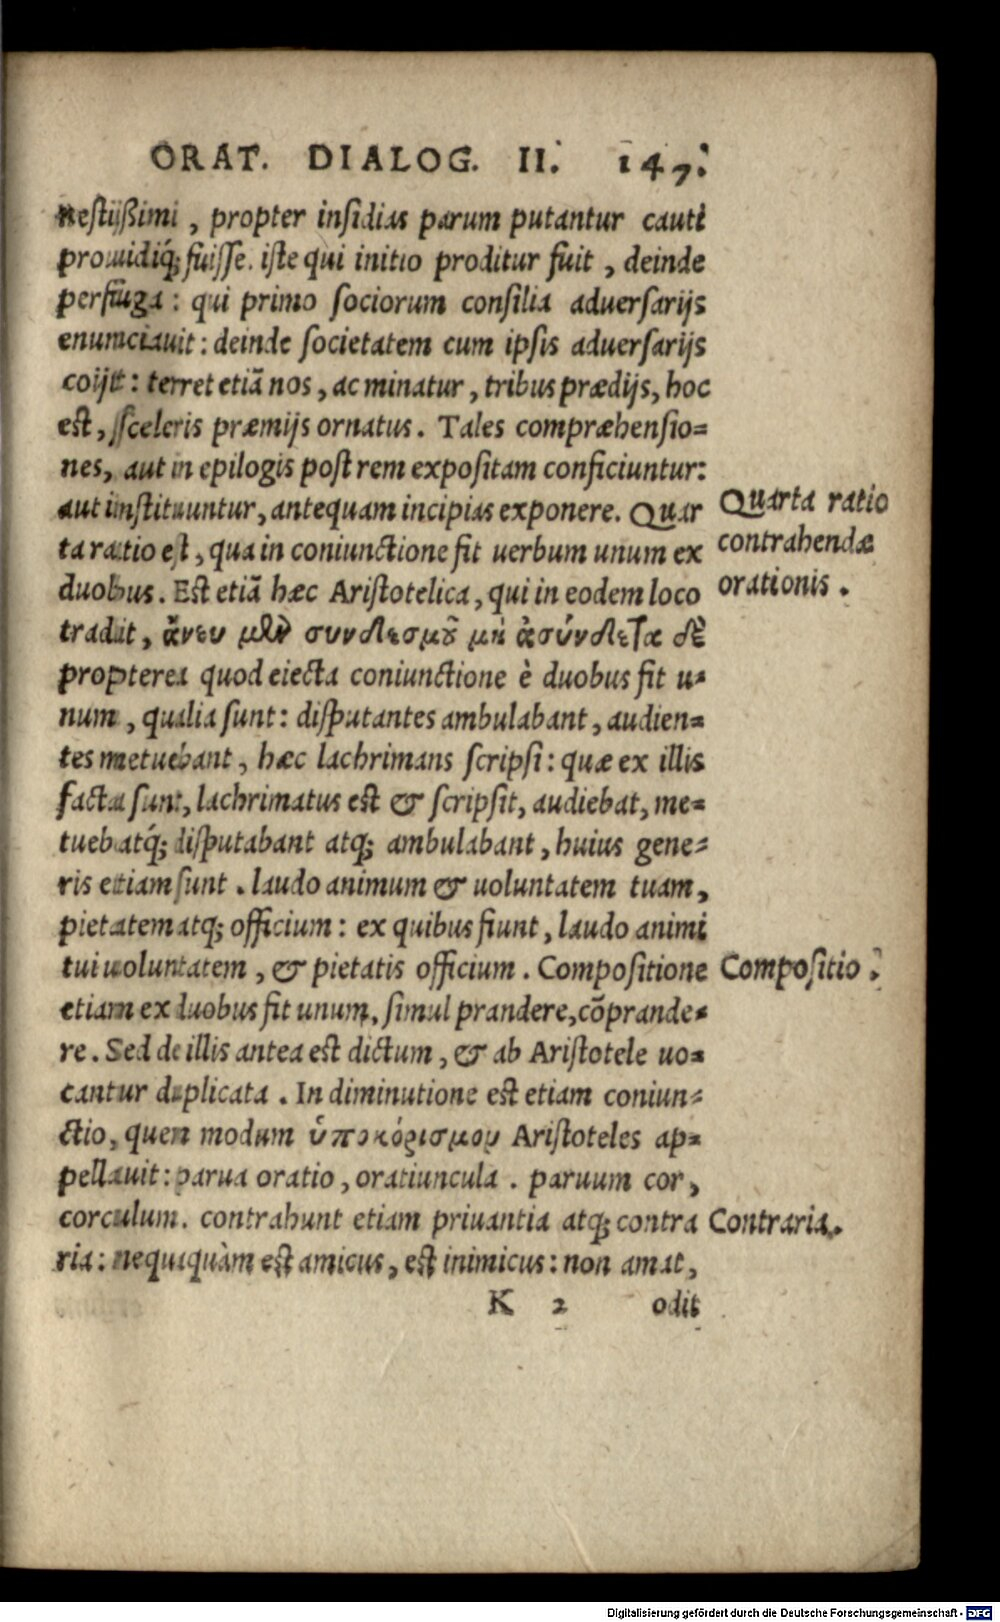 ORAT. DIALOG. II. 147.
nestißimi, propter insidias parum putantur cauti
prouidiq́; fuisse. iste qui initio proditur fuit, deinde
perfuga: qui primo sociorum consilia aduersarijs
enunciauit: deinde societatem cum ipsis aduersarijs
coijt: terret etiã nos, ac minatur, tribus prædijs, hoc
est, sceleris præmijs ornatus. Tales compræhensio=
nes, aut in epilogis post rem expositam conficiuntur:
aut instituuntur, antequam incipias exponere. Quar
ta ratio est, qua in coniunctione fit uerbum unum ex
duobus. Est etiã hæc Aristotelica, qui in eodem loco
tradit, ἄνευ μὲν συνδεσμοῦ μὴ ἀσύνδετα δὲ
propterea quod eiecta coniunctione è duobus fit u=
num, qualia sunt: disputantes ambulabant, audien=
tes metuebant, hæc lachrimans scripsi: quæ ex illis
facta sunt, lachrimatus est & scripsit, audiebat, me=
tuebatq́; disputabant atq; ambulabant, huius gene=
ris etiam sunt. laudo animum & uoluntatem tuam,
pietatem atq; officium: ex quibus fiunt, laudo animi
tui uoluntatem, & pietatis officium. Compositione
etiam ex duobus fit unum, simul prandere, cõprande=
re. Sed de illis antea est dictum, & ab Aristotele uo=
cantur duplicata. In diminutione est etiam coniun=
ctio, quem modum ὑποκόρισμον Aristoteles ap=
pellauit: parua oratio, oratiuncula. paruum cor,
corculum. contrahunt etiam priuantia atq; contra
ria: nequaquàm est amicus, est inimicus: non amat,
K 2 odit
Quarta ratio
contrahendæ
orationis.
Compositio.
Contraria.
Digitalisierung gefördert durch die Deutsche Forschungsgemeinschaft - DFG